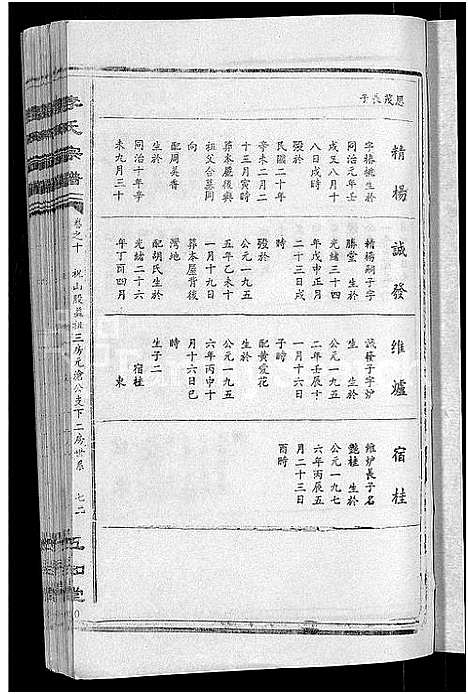 恩茂長子
精楊
字椿桃生於
同治元年壬
戌又八月十
八日戌時
歿於
民國二十年
辛未二月二
十三日寅時
葬本屋後與
祖父合墓同
向
配周美香
生於
同治十年辛
未九月三十
誠發
精楊嗣子字
勝堂 生於
光緒三十四
年戊申正月
二十三日戌
時
歿於
公元一九五
五年乙未十
一月十九日
葬本屋背後
灣地
配胡氏生於
光緒二十六
年丁酉四月
维爐
誠發子字炉
生 生於
公元一九五
二年壬辰十
一月十六日
子時
配黄愛花
公元一九五
六年丙申十
一月十六日巳
時
生子二
宿桂
東
宿桂
维炉長子名
艶桂 生於
公元一九七
六年丙辰五
月二十三日
酉時
李氏宗譜
卷之十 祝山股益祖三房元滄公支下二房世系 七二